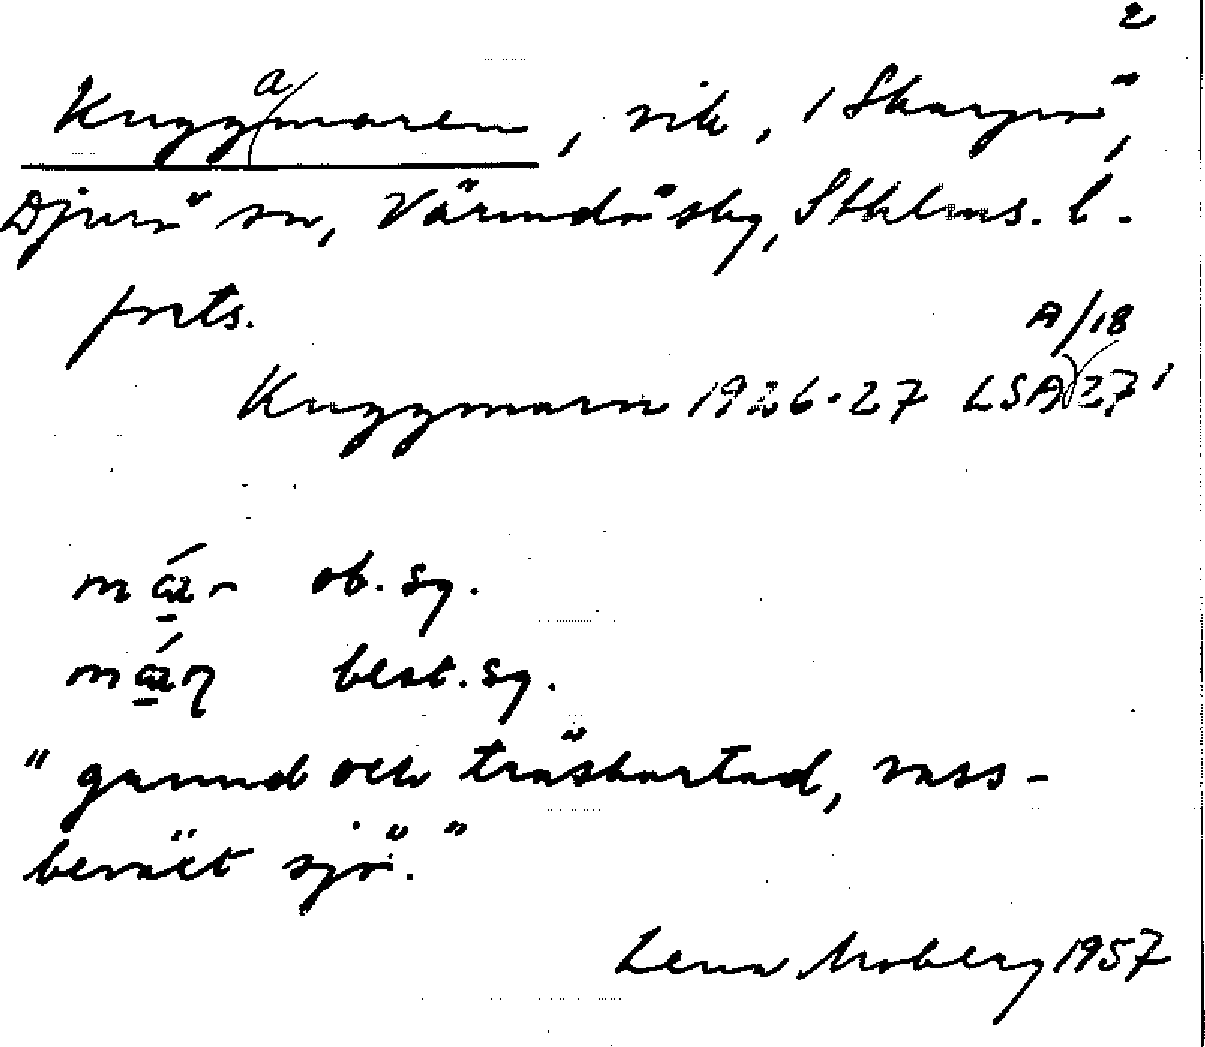 2
Kuggamaren, vik, i Skarpö,
Djurö sn, Värmdö skg, Sthlms. l.
forts.
Kuggmarn 1926-27 LSA A/18 27'
ob. sg.
best. sg.
"grund och träskartad, vass-
beväxt sjö."
Lena Moberg 1957